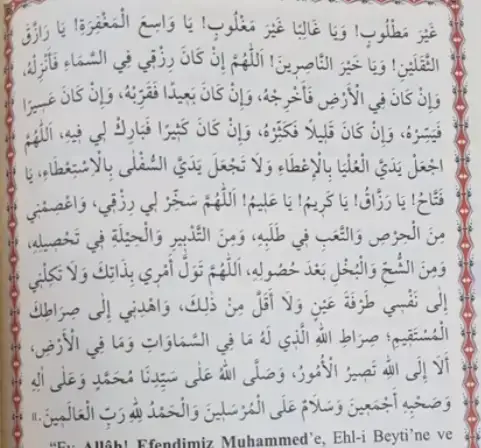 غَيْرَ مَطْلُوبٍ! وَيَا غَالِبًا غَيْرَ مَغْلُوبٍ! يَا وَاسِعَ الْمَغْفِرَةِ! يَا رَازِقَ
الثَّقَلَيْنِ! وَيَا خَيْرَ النَّاصِرِينَ! اَللّٰهُمَّ إِنْ كَانَ رِزْقِي فِي السَّمَاءِ فَأَنْزِلْهُ،
وَإِنْ كَانَ فِي الْأَرْضِ فَأَخْرِجْهُ، وَإِنْ كَانَ بَعِيدًا فَقَرِّبْهُ، وَإِنْ كَانَ عَسِيرًا
فَيَسِّرْهُ، وَإِنْ كَانَ قَلِيلًا فَكَثِّرْهُ، وَإِنْ كَانَ كَثِيرًا فَبَارِكْ لِي فِيهِ، اَللّٰهُمَّ
اجْعَلْ يَدَيَّ الْعُلْيَا بِالْإِعْطَاءِ وَلَا تَجْعَلْ يَدَيَّ السُّفْلَى بِالْاِسْتِعْطَاءِ، يَا
فَتَّاحُ! يَا رَزَّاقُ! يَا كَرِيمُ! يَا عَلِيمُ! اَللّٰهُمَّ سَخِّرْ لِي رِزْقِي، وَاعْصِمْنِي
مِنَ الْحِرْصِ وَالتَّعَبِ فِي طَلَبِهِ، وَمِنَ التَّدْبِيرِ وَالْحِيلَةِ فِي تَحْصِيلِهِ،
وَمِنَ الشُّحِّ وَالْبُخْلِ بَعْدَ حُصُولِهِ، اَللّٰهُمَّ تَوَلَّ أَمْرِي بِذَاتِكَ وَلَا تَكِلْنِي
إِلَى نَفْسِي طَرْفَةَ عَيْنٍ وَلَا أَقَلَّ مِنْ ذٰلِكَ، وَاهْدِنِي إِلَى صِرَاطِكَ
الْمُسْتَقِيمِ؛ صِرَاطِ اللهِ الَّذِي لَهُ مَا فِي السَّمَاوَاتِ وَمَا فِي الْأَرْضِ،
أَلَا إِلَى اللهِ تَصِيرُ الْأُمُورُ، وَصَلَّى اللهُ عَلَى سَيِّدِنَا مُحَمَّدٍ وَعَلَى اٰلِهِ
وَصَحْبِهِ أَجْمَعِينَ وَسَلَامٌ عَلَى الْمُرْسَلِينَ وَالْحَمْدُ لِلهِ رَبِّ الْعَالَمِينَ."
"Ey Allâh! Efendimiz Muhammed'e, Ehl-i Beyti'ne ve